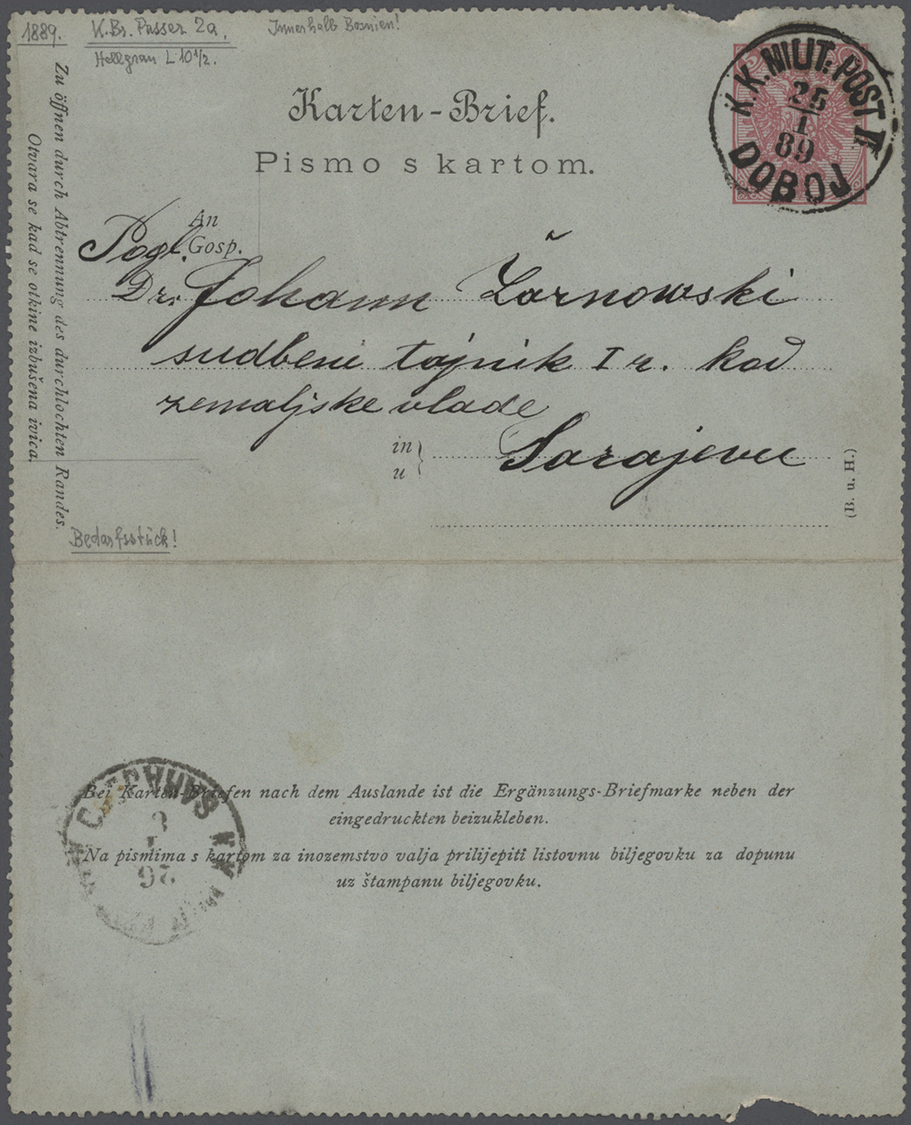 1889. K.Br. Passer 2a. Innerhalb Bosnien!
Hellgrau L 10½.
Zu öffnen durch Abtrennung des durchlochten Randes.
Otvara se kad se otkine izbušena ivica.
Karten-Brief.
Pismo s kartom.
K.K. MILIT: POST
25
I
89
DOBOJ
An
Pogl. Gosp.
Dr. Johann Žarnowski
sudbeni tajnik I r. kod
zemaljske vlade
in
u
Sarajevu
(B. u. H.)
Bedarfsstück!
Bei Karten-Briefen nach dem Auslande ist die Ergänzungs-Briefmarke neben der
eingedruckten beizukleben.
Na pismima s kartom za inozemstvo valja prilijepiti listovnu biljegovku za dopunu
uz štampanu biljegovku.